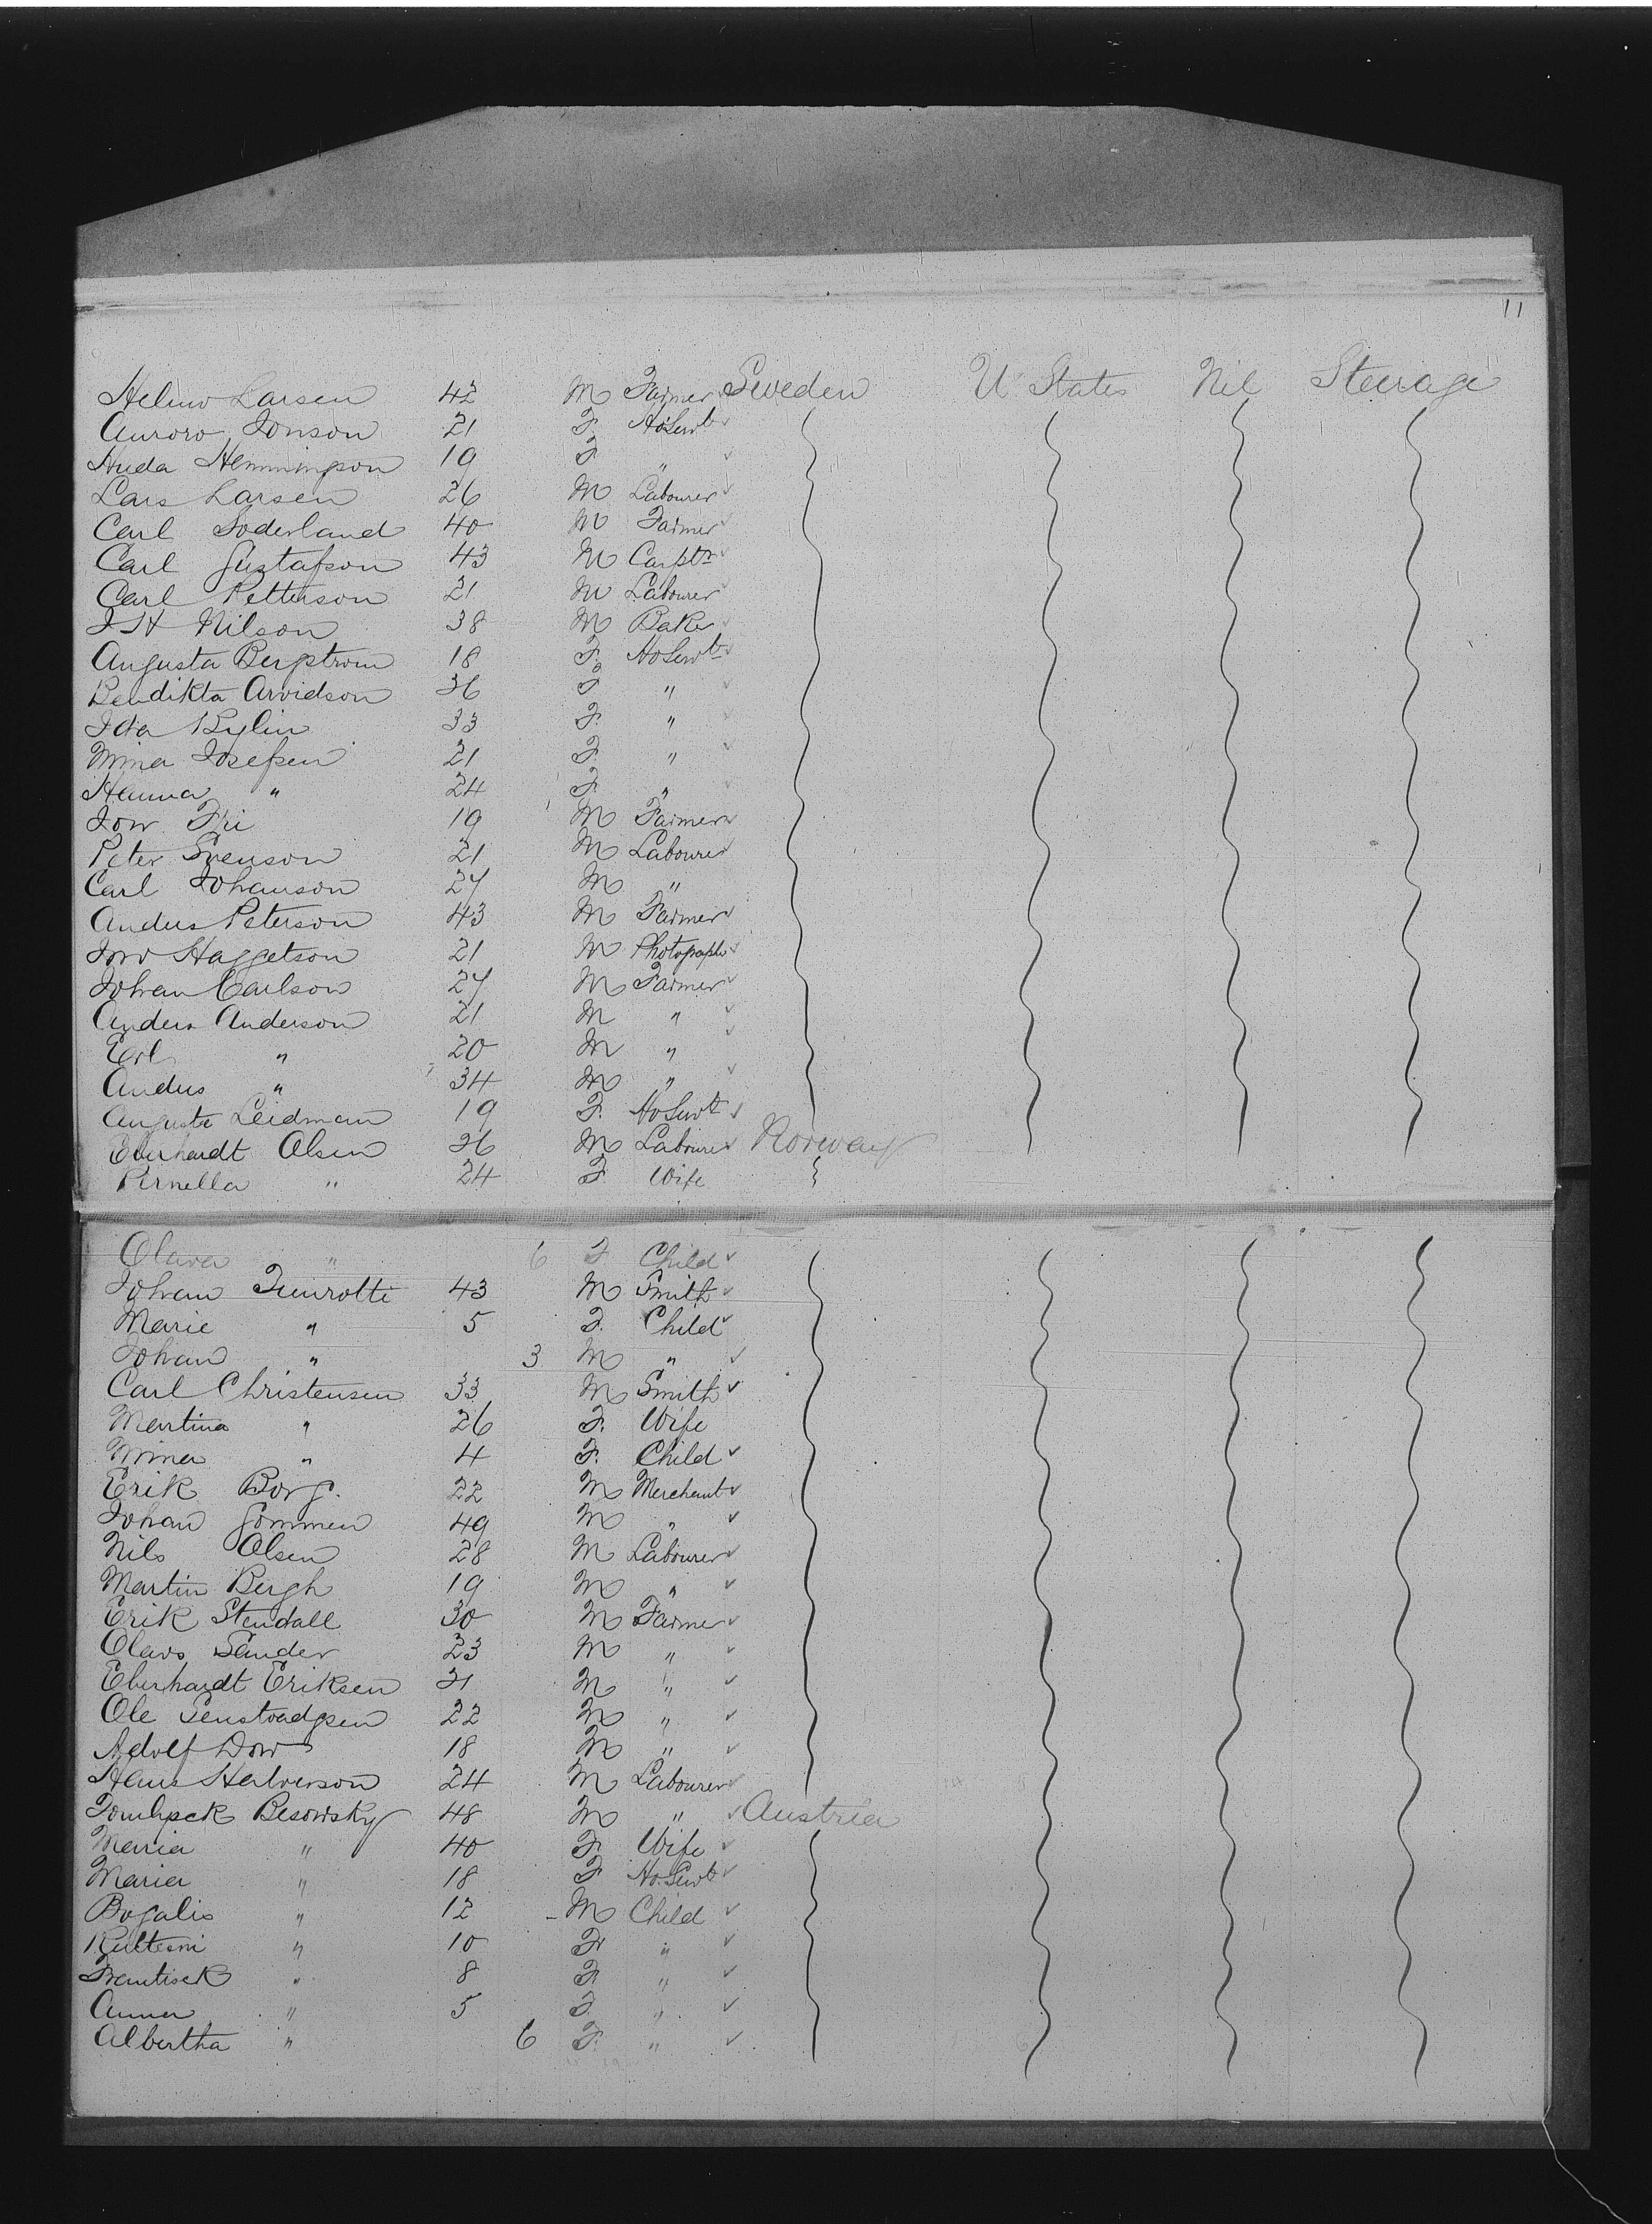 11
Helmo Larsen 42 M Farmer Sweden U States Nil Steerage
Auroro Jonson 21 F Ho Servt
Huda Hemmingson 19 F "
Lars Larsen 26 M Labourer
Carl Soderland 40 M Farmer
Carl Gustafson 43 M Carptr
Carl Petterson 21 M Labourer
J H Nilson 38 M Baker
Augusta Bergstrom 18 F Ho Servt
Bendikta Arvidson 36 F "
Ida Bylin 33 F "
Mina Josefsen 21 F "
Hanna " 24 F "
Jow Fri 19 M Farmer
Peter Svenson 21 M Labourer
Carl Johanson 27 M "
Andus Peterson 43 M Farmer
Jow Haggetson 21 M Photographr
Johan Carlson 27 M Farmer
Anders Anderson 21 M "
Erl " 20 M "
Andus " 34 M "
Augusta Leidman 19 F Ho Servt
Eberhardt Olsen 26 M Labourer Norway
Pernella " 24 F Wife
Olava " 6 F Child
Johan 43 M Smith
Marie " 5 F Child
Johan " 3 M "
Carl Christensen 33 M Smith
Martina " 26 F Wife
Mina " 4 F Child
Erik Borg. 22 M Merchant
Johan Gommen 49 M "
Nils Olsen 28 M Labourer
Martin Bergh 19 M "
Erik Stendall 30 M Farmer
Olavs Sander 23 M "
Eberhardt Eriksen 21 M "
Ole 22 M "
Adolf Dow 18 M "
Hans Halverson 24 M Labourer
Besowsky 48 M " Austria
Maria " 40 F Wife
Maria " 18 F Ho. Servt
Bogalis " 12 M Child
" 10 F "
Frantisek " 8 F "
Anna " 5 F "
Albertha " 6 F "